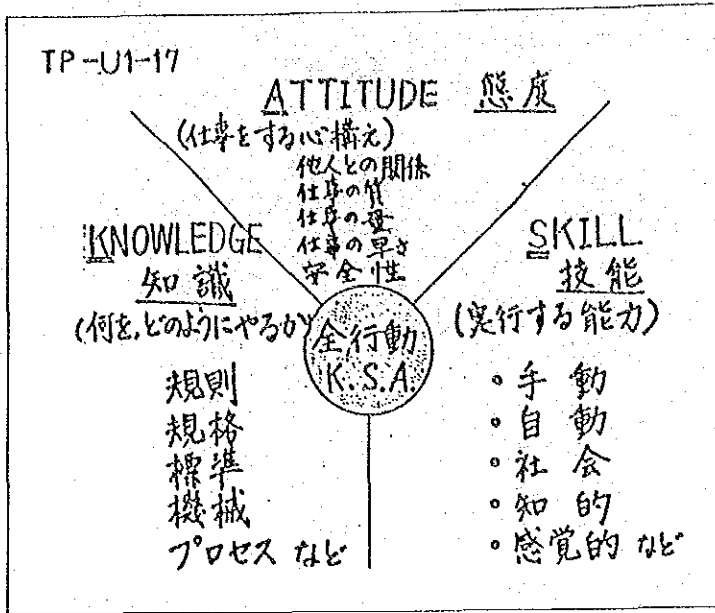 TP-U1-17
ATTITUDE 態度
(仕事をする心構え)
他人との関係
仕事の質
仕事の量
仕事の早さ
安全性
KNOWLEDGE
知識
(何を,どのようにやるか)
規則
規格
標準
機械
プロセス など
全行動
K.S.A.
SKILL
技能
(実行する能力)
・手動
・自動
・社会
・知的
・感覚的 など